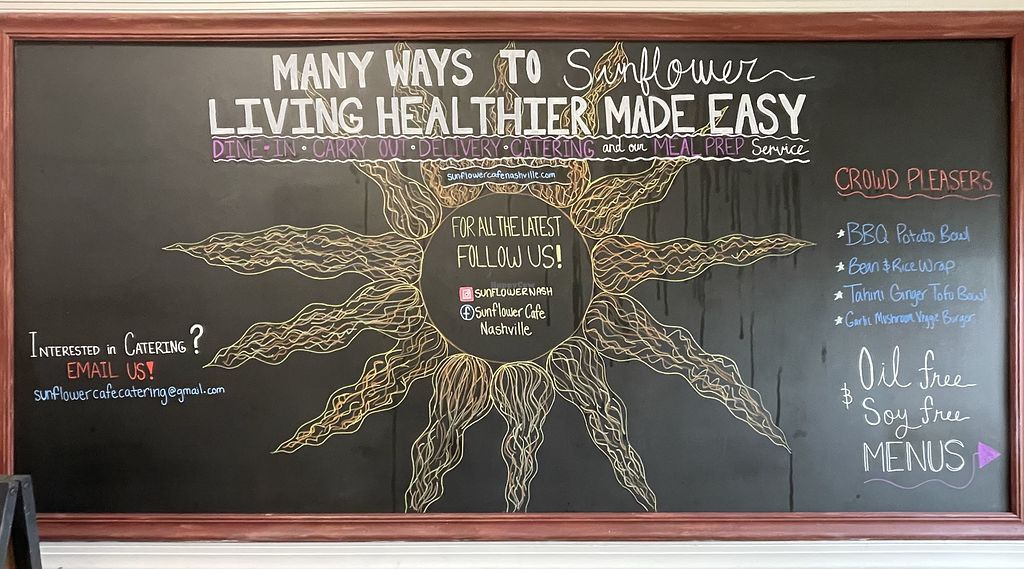 MANY WAYS TO Sunflower
LIVING HEALTHIER MADE EASY
DINE-IN · CARRY OUT · DELIVERY · CATERING and our MEAL PREP Service
sunflowercafenashville.com
FOR ALL THE LATEST
FOLLOW US!
SUNFLOWERNASH
f Sunflower Cafe
Nashville
INTERESTED in CATERING?
EMAIL US!
sunflowercafecatering@gmail.com
CROWD PLEASERS
* BBQ Potato Bowl
* Bean & Rice Wrap
* Tahini Ginger Tofu Bowl
* Garlic Mushroom Veggie Burger
Oil free
& Soy free
MENUS